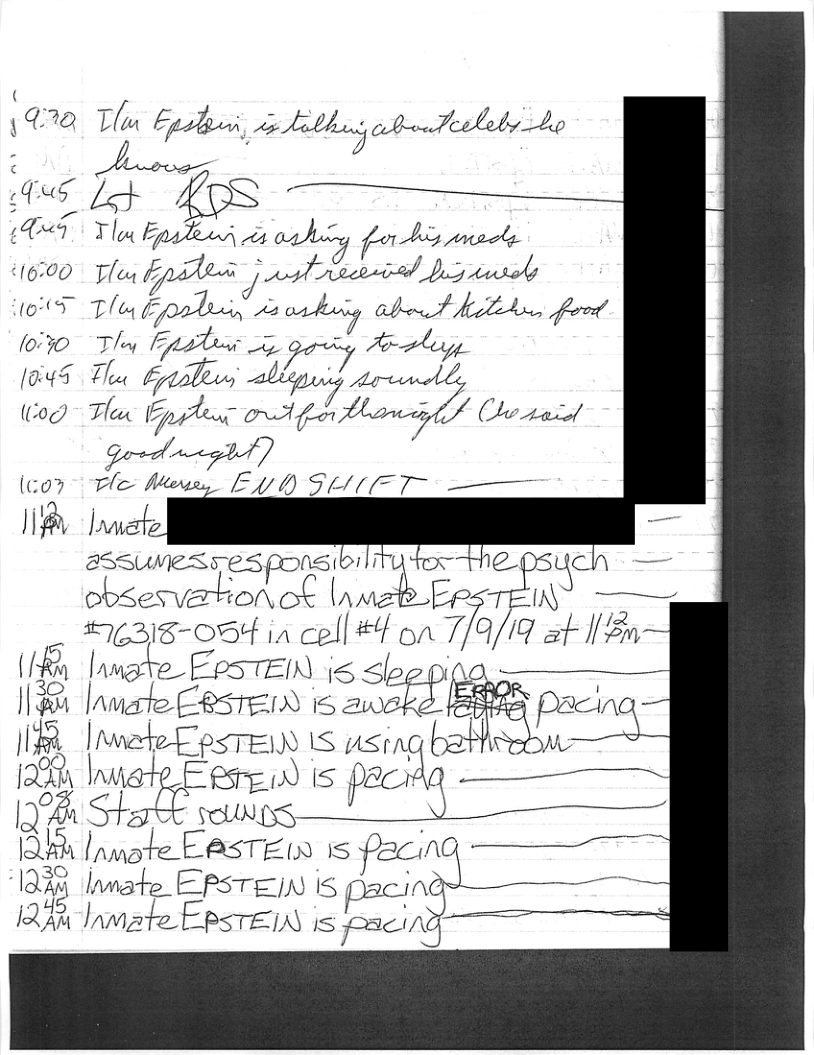 9:30 I/m Epstein is talking about celebs he
knows
9:45 Lt RDS
9:45 I/m Epstein is asking for his meds
10:00 I/m Epstein just received his meds
10:15 I/m Epstein is asking about Kitchen food
10:30 I/m Epstein is going to sleep
10:45 I/m Epstein sleeping soundly
11:00 I/m Epstein out for the night (he said
good night)
11:03 I/c END SHIFT
11 12 Inmate
assumes responsibility for the psych
observation of Inmate EPSTEIN
#76318-054 in cell #4 on 7/9/19 at 11 12 PM
11 15 Inmate EPSTEIN is sleeping
11 30 Inmate EPSTEIN is awake ERROR pacing
11 45 Inmate EPSTEIN is using bathroom
12 00 AM Inmate EPSTEIN is pacing
12 08 AM Staff rounds
12 15 AM Inmate EPSTEIN is pacing
12 30 AM Inmate EPSTEIN is pacing
12 45 AM Inmate EPSTEIN is pacing